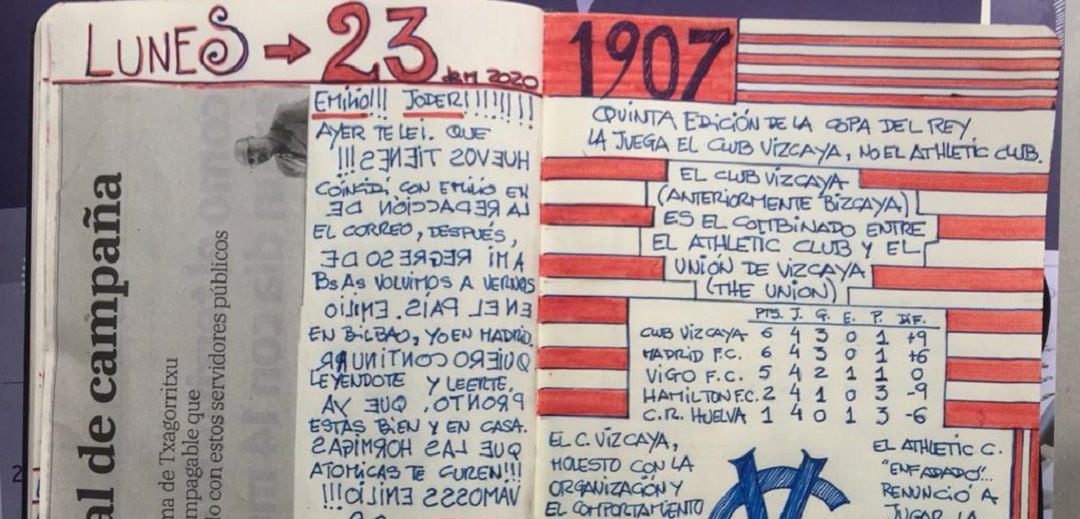 LUNES → 23 de M 2020
al de campaña
ma de Txagorritxu
mpagable que
o con estos servidores públicos
EMILIO!!! JODER!!!!!!!!
AYER TE LEI. QUE
HUEVOS TIENES!!!
COINCIDI CON EMILIO EN
LA REDACCIÓN DE
EL CORREO, DESPUÉS,
A MI REGRESO DE
BsAs VOLVIMOS A VERNOS
EN EL PAÍS. EMILIO
EN BILBAO, YO EN MADRID.
QUIERO CONTINUAR
LEYENDOTE Y LEERTE,
PRONTO, QUE YA
ESTAS BIEN Y EN CASA.
QUE LAS HORMIGAS
ATOMICAS TE CUREN!!!
VAMOSSS EMILIO!!!
1907
QUINTA EDICIÓN DE LA COPA DEL REY
LA JUEGA EL CLUB VIZCAYA, NO EL ATHLETIC CLUB.
EL CLUB VIZCAYA
(ANTERIORMENTE BIZCAYA)
ES EL COMBINADO ENTRE
EL ATHLETIC CLUB Y EL
UNIÓN DE VIZCAYA
(THE UNION)
PTS. J. G. E. P. DIF.
CLUB VIZCAYA 6 4 3 0 1 +9
MADRID F.C. 6 4 3 0 1 +6
VIGO F.C. 5 4 2 1 1 0
HAMILTON F.C. 2 4 1 0 3 -9
C.R. HUELVA 1 4 0 1 3 -6
EL C. VIZCAYA,
MOLESTO CON LA
ORGANIZACIÓN Y
EL COMPORTAMIENTO
EL ATHLETIC C.
"ENFADADO"...
RENUNCIÓ A
JUGAR LA